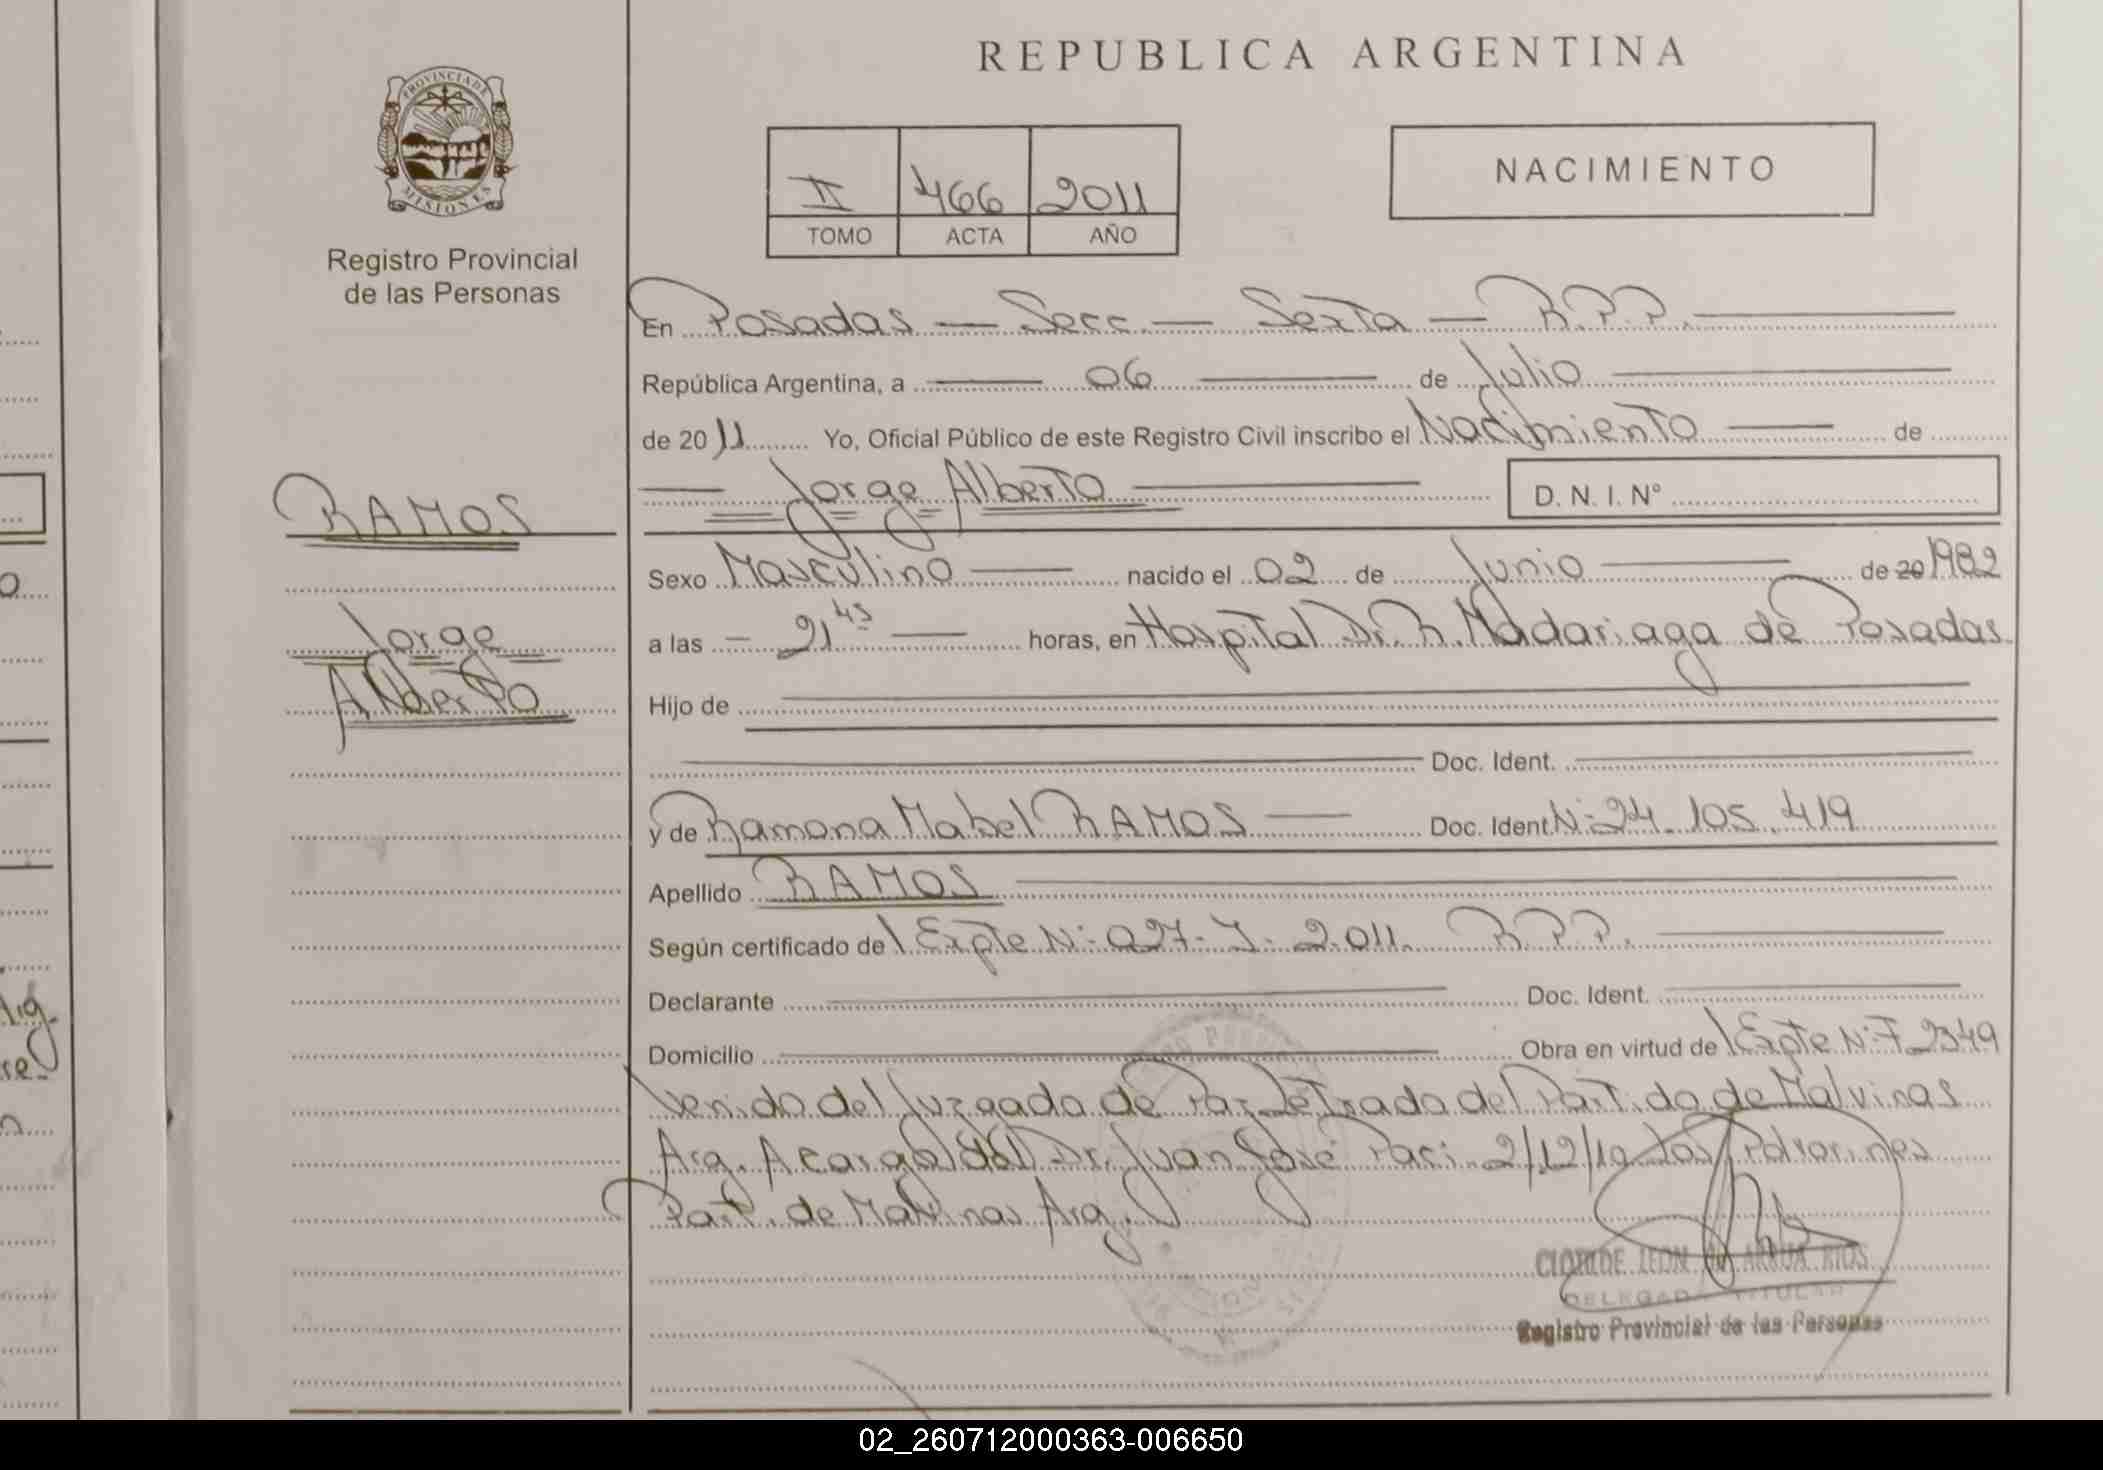 REPUBLICA ARGENTINA
PROVINCIA DE MISIONES
Registro Provincial
de las Personas
II 466 2011
TOMO ACTA AÑO
NACIMIENTO
En Posadas — Secc. — Sexta — R.P.P.
República Argentina, a 06 de Julio
de 2011 Yo, Oficial Público de este Registro Civil inscribo el Nacimiento de
Jorge Alberto D. N. I. N°
RAMOS
Jorge
Alberto
Sexo Masculino nacido el 02 de Junio de 20 1982
a las 21 45 horas, en Hospital Dr. R. Madariaga de Posadas
Hijo de
Doc. Ident.
y de Ramona Mabel RAMOS Doc. Ident. N: 24.105.419
Apellido RAMOS
Según certificado de Expte N: 027 - 2011. R.P.P.
Declarante Doc. Ident.
Domicilio Obra en virtud de Expte N: 72349
Venido del Juzgado de Paz Letrado del Partido de Malvinas
Arg. A cargo del Dr. Juan José Paci 2/12/10 Los Polvorines
Part. de Malvinas Arg.
CLOTILDE LEON ARRUA RIOS
DELEGADA TITULAR
Registro Provincial de las Personas
02_260712000363-006650